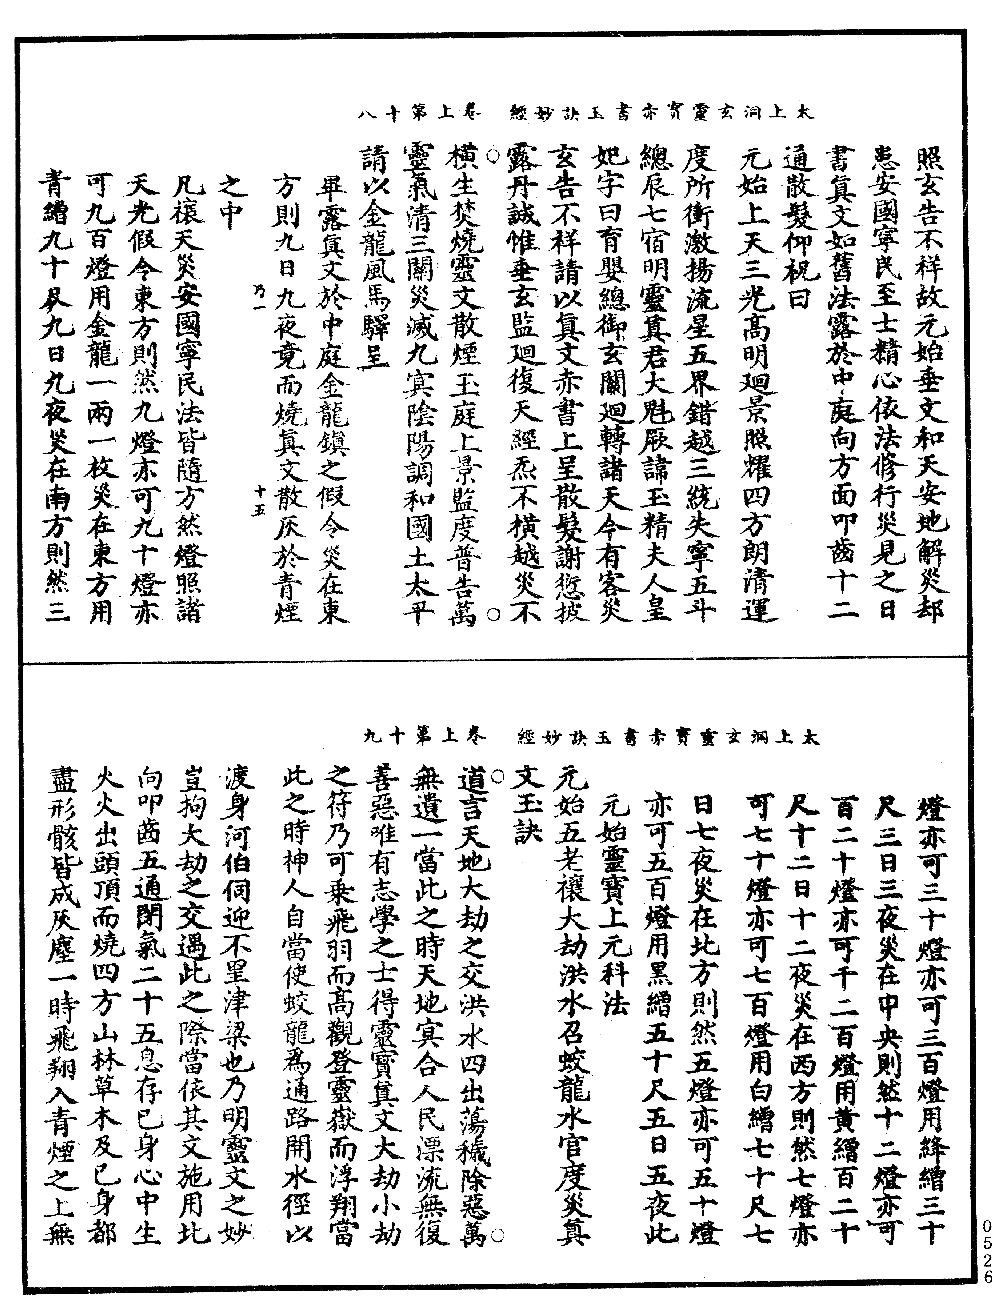 太上洞玄靈寶赤書玉訣妙經 卷上第十八
照玄告不祥故元始垂文和天安地解災却
患安國寧民至士精心依法修行災見之日
書真文如舊法露於中庭向方面叩齒十二
通散髮仰祝曰
元始上天三光高明迴景照耀四方朗清運
度所衝激揚流星五界錯越三統失寧五斗
總辰七宿明靈真君大魁厥諱玉精夫人皇
妃字曰育嬰總御玄關迴轉諸天今有客災
玄告不祥請以真文赤書上呈散髮謝愆披
露丹誠惟垂玄監迴復天經炁不橫越災不
橫生焚燒靈文散煙玉庭上景監度普告萬
靈氣清三關災滅九冥陰陽調和國土太平
請以金龍風馬驛呈
畢露真文於中庭金龍鎮之假令災在東
方則九日九夜竟而燒真文散灰於青煙
乃一 十五
之中
凡禳天災安國寧民法皆隨方然燈照諸
天光假令東方則然九燈亦可九十燈亦
可九百燈用金龍一兩一枚災在東方用
青繒九十尺九日九夜災在南方則然三
太上洞玄靈寶赤書玉訣妙經 卷上第十九
燈亦可三十燈亦可三百燈用絳繒三十
尺三日三夜災在中央則然十二燈亦可
百二十燈亦可千二百燈用黃繒百二十
尺十二日十二夜災在西方則然七燈亦
可七十燈亦可七百燈用白繒七十尺七
日七夜災在北方則然五燈亦可五十燈
亦可五百燈用黑繒五十尺五日五夜此
元始靈寶上元科法
元始五老禳大劫洪水召蛟龍水官度災真
文玉訣
道言天地大劫之交洪水四出蕩穢除惡萬
無遺一當此之時天地冥合人民漂流無復
善惡唯有志學之士得靈寶真文大劫小劫
之符乃可乘飛羽而高觀登靈嶽而浮翔當
此之時神人自當使蛟龍為通路開水徑以
渡身河伯伺迎不星津梁也乃明靈文之妙
豈拘大劫之交遇此之際當依其文施用北
向叩齒五通閉氣二十五息存己身心中生
火火出頭頂而燒四方山林草木及己身都
盡形骸皆成灰塵一時飛翔入青煙之上無
0526